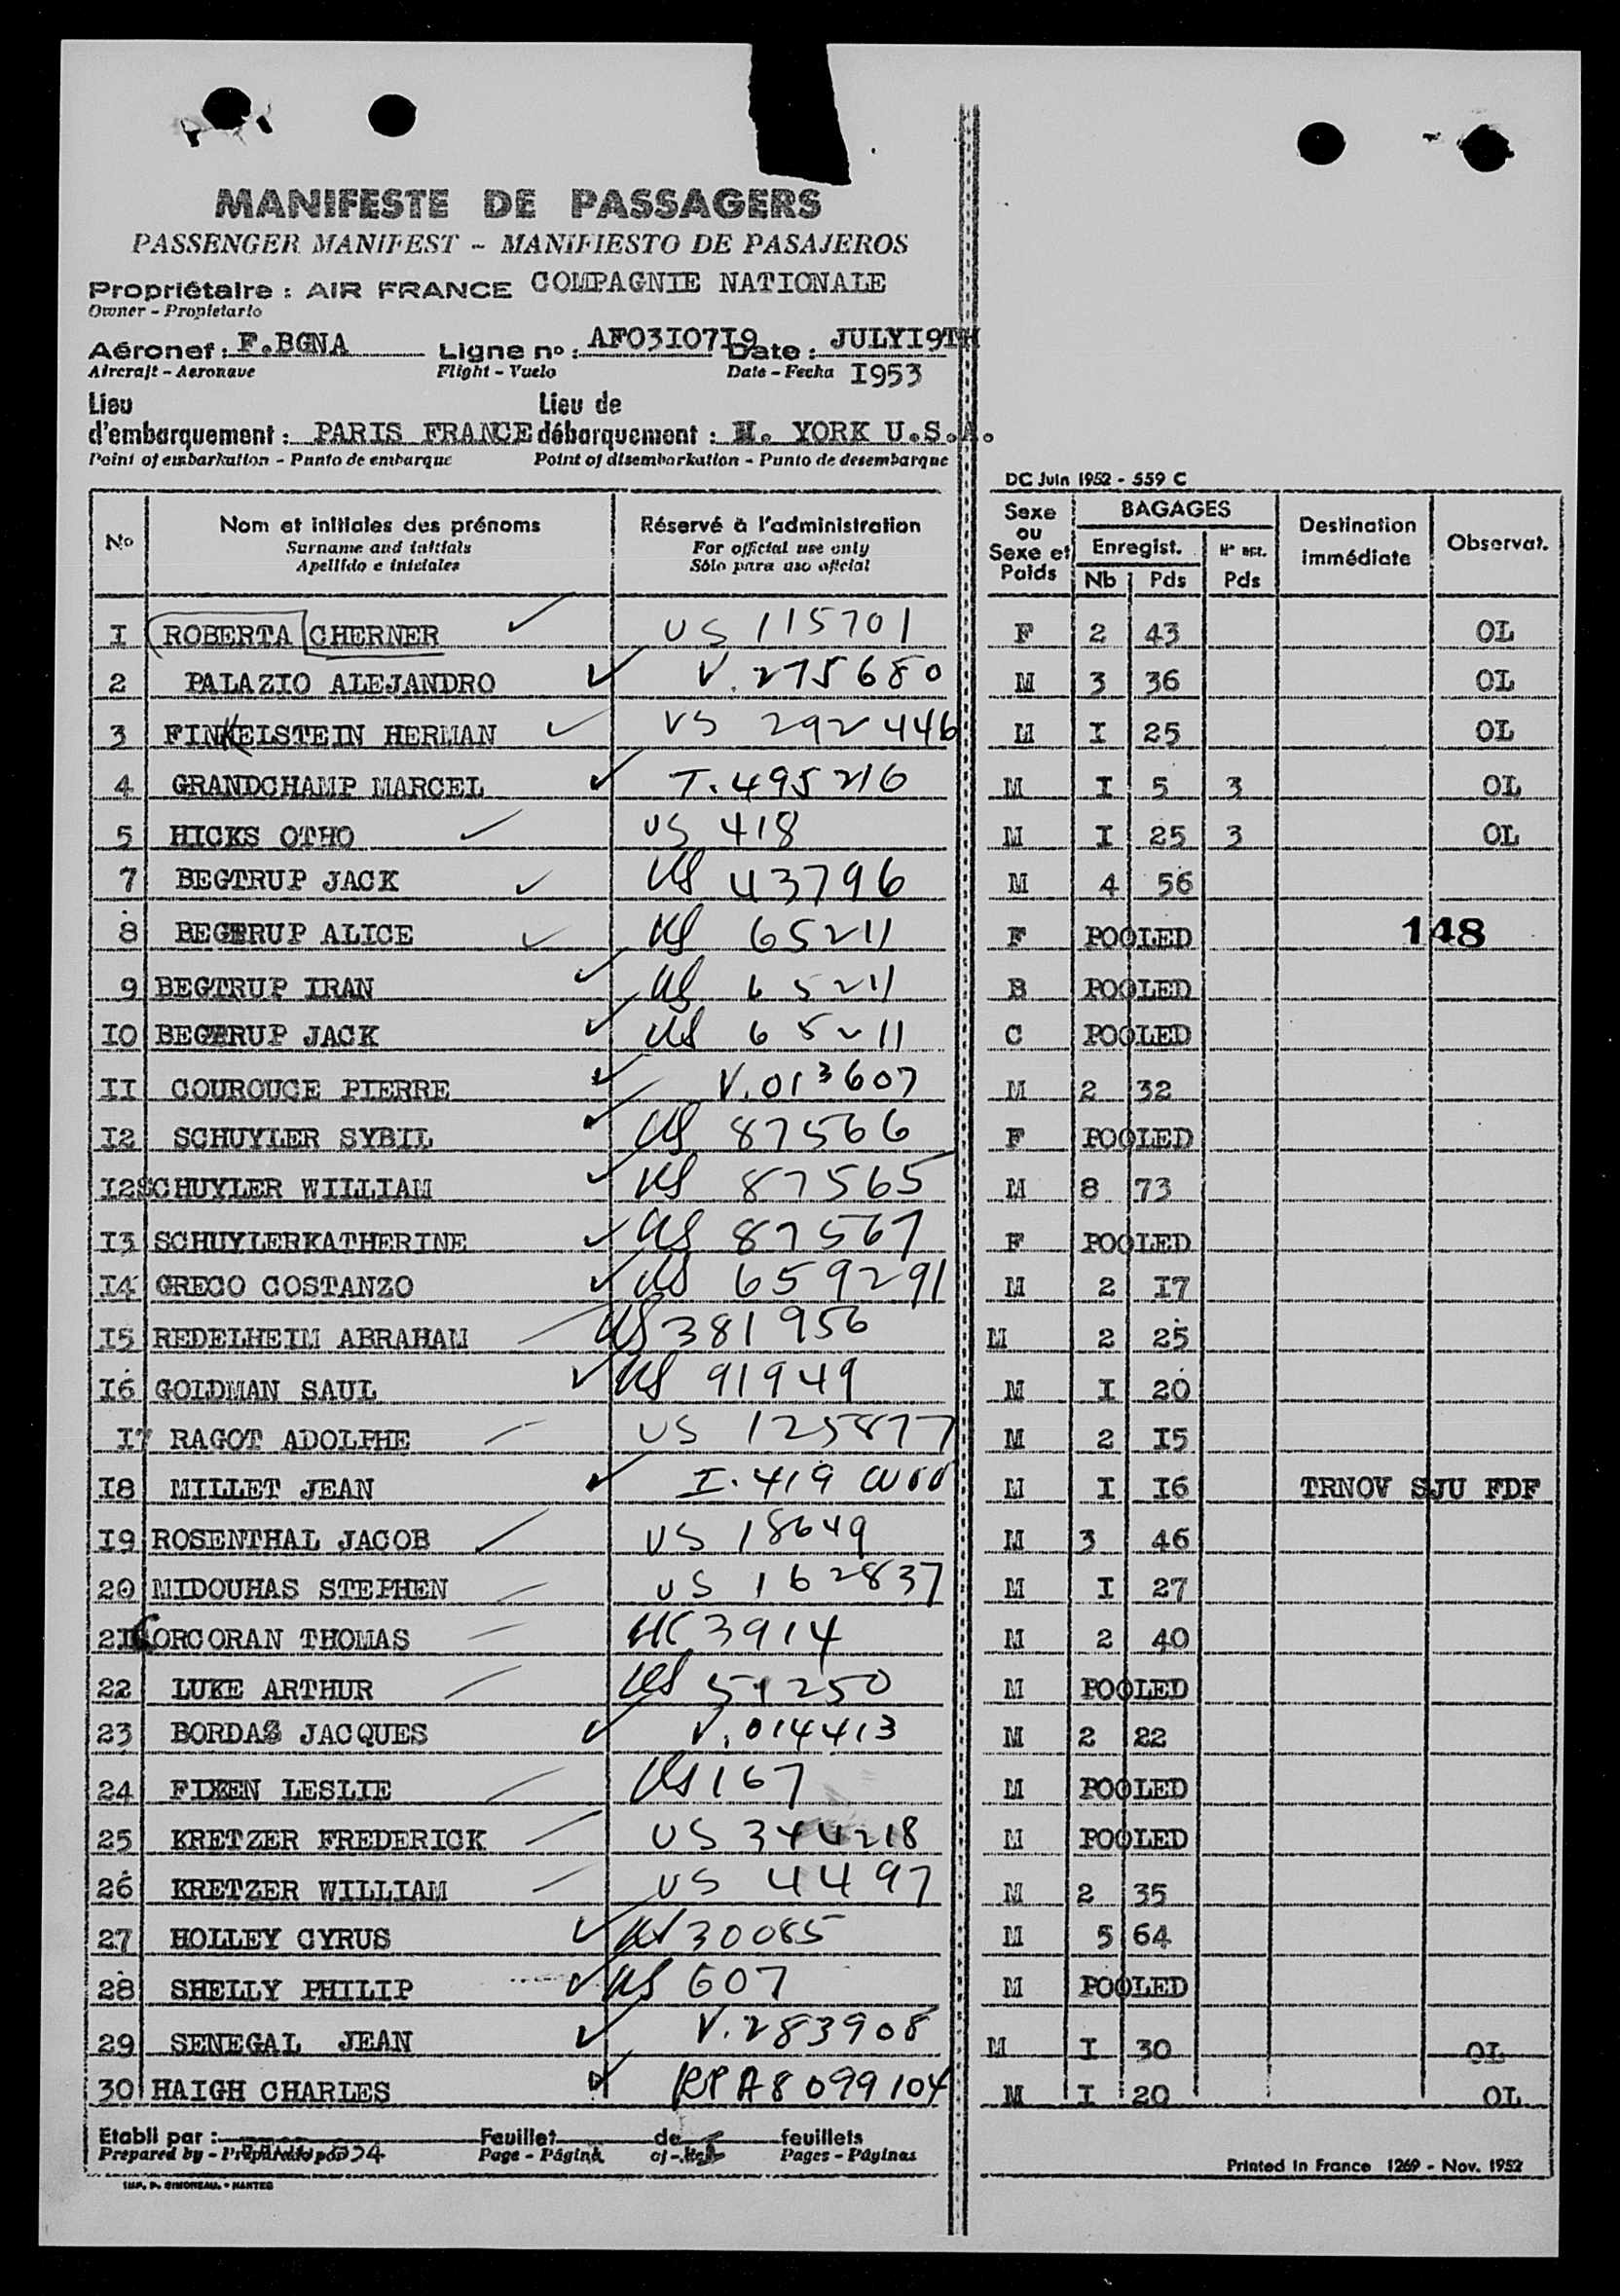 MANIFESTE DE PASSAGERS
PASSENGER MANIFEST - MANIFIESTO DE PASAJEROS
Propriétaire : AIR FRANCE COMPAGNIE NATIONALE
Owner - Propietario
Aéronef : F.BGNA Ligne no : AF03I07I9 Date : JULYI9TH
Aircraft - Aeronave Flight - Vuelo Date - Fecha I953
Lieu Lieu de
d'embarquement : PARIS FRANCE débarquement : N. YORK U.S.A.
Point of embarkation - Punto de embarque Point of disembarkation - Punto de desembarque
DC Juin 1952 - 559 C
No Nom et initiales des prénoms Réservé à l'administration Sexe ou Sexe et Poids BAGAGES Destination immédiate Observat.
Surname and initials For official use only Enregist.
Apellido e iniciales Sólo para uso oficial Nb Pds Pds
I ROBERTA CHERNER US 115701 F 2 43 OL
2 PALAZIO ALEJANDRO V.275680 M 3 36 OL
3 FINKELSTEIN HERMAN US 292446 M I 25 OL
4 GRANDCHAMP MARCEL T.495216 M I 5 3 OL
5 HICKS OTHO US 418 M I 25 3 OL
7 BEGTRUP JACK US 43796 M 4 56
8 BEGTRUP ALICE US 65211 F POOLED 148
9 BEGTRUP IRAN US 65211 B POOLED
IO BEGTRUP JACK US 65211 C POOLED
II COUROUCE PIERRE V.013607 M 2 32
I2 SCHUYLER SYBIL US 87566 F POOLED
I2 SCHUYLER WILLIAM US 87565 M 8 73
I3 SCHUYLERKATHERINE US 87567 F POOLED
I4 GRECO COSTANZO US 659291 M 2 I7
I5 REDELHEIM ABRAHAM US 381956 M 2 25
I6 GOLDMAN SAUL US 91949 M I 20
I7 RAGOT ADOLPHE US 125877 M 2 I5
I8 MILLET JEAN I.419 M I I6 TRNOV SJU FDF
I9 ROSENTHAL JACOB US 18649 M 3 46
20 MIDOUHAS STEPHEN US 162837 M I 27
2I CORCORAN THOMAS 3914 M 2 40
22 LUKE ARTHUR US 51250 M POOLED
23 BORDAS JACQUES V.014413 M 2 22
24 FIXEN LESLIE US 167 M POOLED
25 KRETZER FREDERICK US 344218 M POOLED
26 KRETZER WILLIAM US 4497 M 2 35
27 HOLLEY CYRUS US 30085 M 5 64
28 SHELLY PHILIP US 607 M POOLED
29 SENEGAL JEAN V.283908 M I 30 OL
30 HAIGH CHARLES RPA8099104 M I 20 OL
Etabli par : Feuillet de feuillets
Prepared by - Preparado por Page - Página of - de Pages - Páginas
Printed in France 1269 - Nov. 1952
IMP. P. SIMONEAU. - NANTES